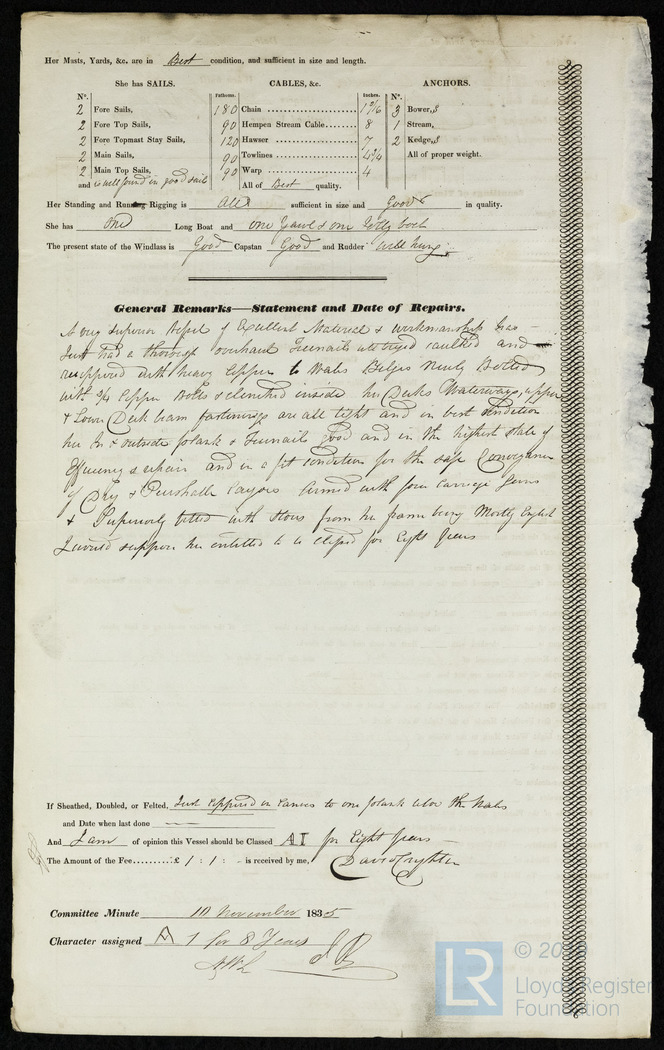 Her Masts, Yards, &c. are in Best condition, and sufficient in size and length.
She has SAILS. CABLES, &c. ANCHORS.
Nº. Fathoms. Inches. Nº.
2 Fore Sails, 180 Chain 1 3 Bower,s
2 Fore Top Sails, 90 Hempen Stream Cable 8 1 Stream,
2 Fore Topmast Stay Sails, 120 Hawser 7 2 Kedge,s
2 Main Sails, 90 Towlines 4 3/4 All of proper weight.
2 Main Top Sails, 90 Warp 4
and is well found in good sails All of Best quality.
Her Standing and Running Rigging is All sufficient in size and Good in quality.
She has one Long Boat and one Yawl & one Jolly boat
The present state of the Windlass is Good Capstan Good and Rudder well hung
General Remarks—Statement and Date of Repairs.
A very superior Vessel of Excellent Material & workmanship has
Just had a thorough overhaul Treenails caulked and
recoppered with heavy Copper to Wales Bilges Newly Bolted
with 3/4 Copper Bolts & clenched inside her Decks Waterways, upper
& Lower Deck beam fastenings are all tight and in best Condition
her In & outside plank & Treenails good and in the highest state of
Efficiency & repair and in a fit condition for the safe Conveyance
of Dry & Perishable Cargoes Armed with four Carriage Guns
& Superiorly fitted with Stores from her frame being Mostly English
I would suppose her entitled to be classed for Eight Years
If Sheathed, Doubled, or Felted, Just Coppered in to one plank above the Wales
and Date when last done
And I am of opinion this Vessel should be Classed A1 for Eight Years
The Amount of the Fee..........£ 1 : 1 : - is received by me,
David Crighton
Committee Minute 10 November 1835
Character assigned A 1 for 8 Years
LR
Lloyd's Register
Foundation